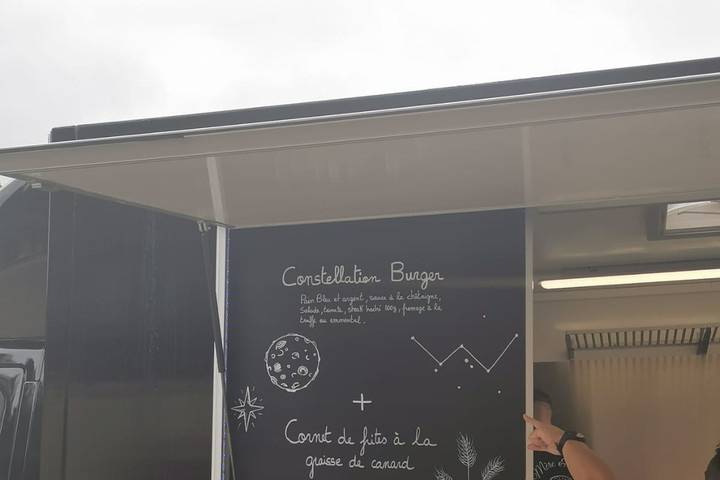 Constellation Burger
Pain Bleu et argent, sauce à la châtaigne,
Salade, tomate, steak haché 100g, fromage à la
truffe ou emmental.
+
Cornet de frites à la
graisse de canard